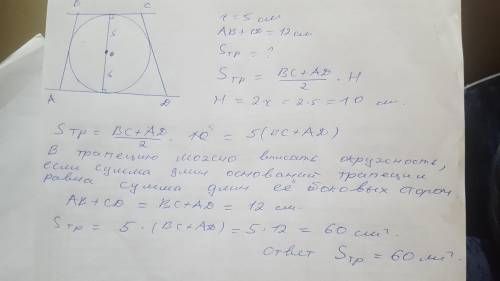 B C
5
O
5
A D
r = 5 см
AB + CD = 12 см
Sтр = ?
Sтр = BC + AD / 2 · H
H = 2r = 2·5 = 10 см.
Sтр = BC + AD / 2 · 10 = 5(BC + AD)
В трапецию можно вписать окружность,
если сумма длин оснований трапеции
равна сумма длин её боковых сторон.
AB + CD = BC + AD = 12 см.
Sтр = 5 · (BC + AD) = 5·12 = 60 см².
ответ Sтр = 60 см².